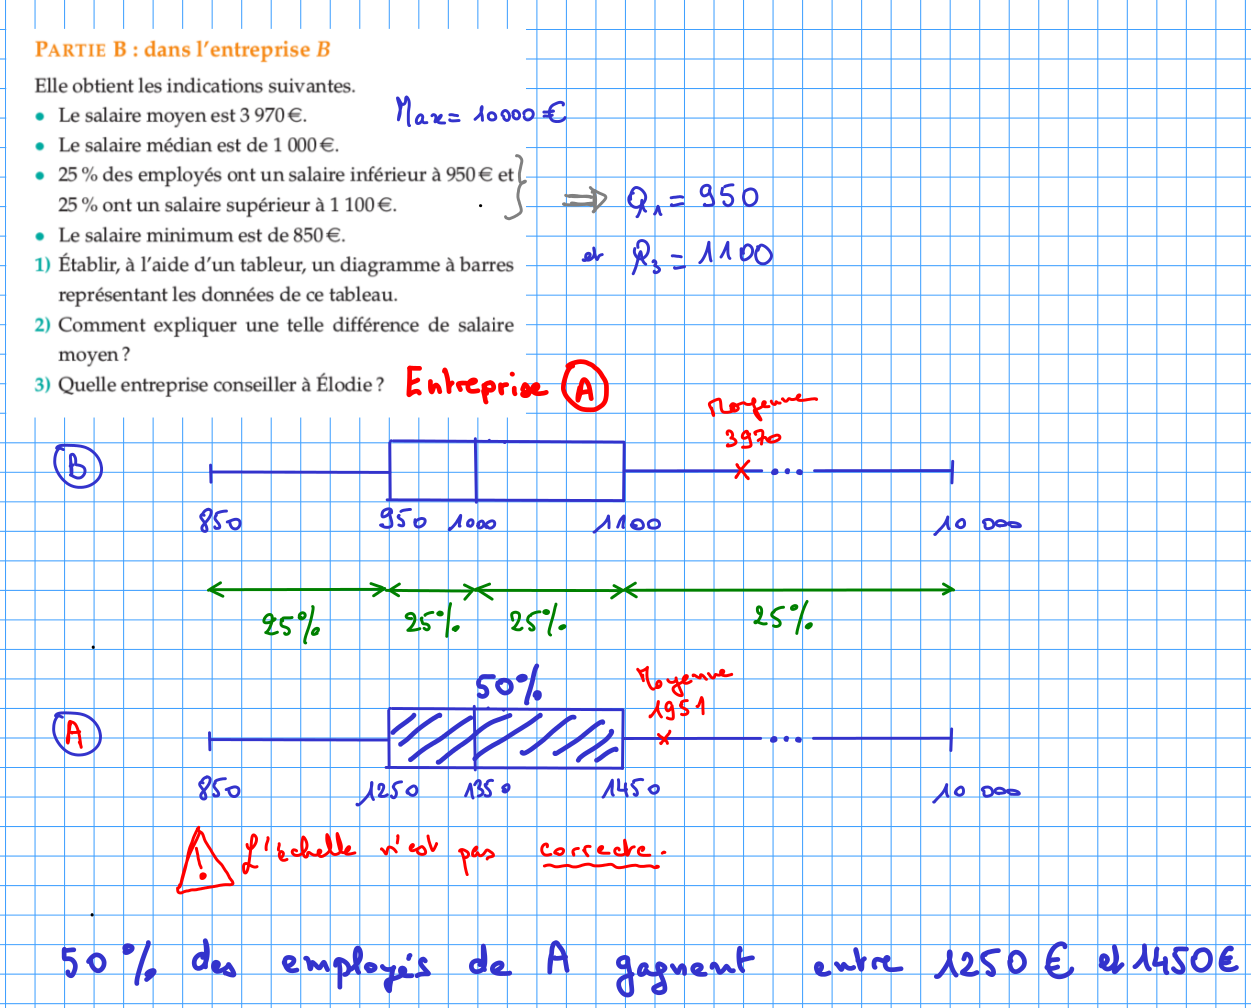 PARTIE B : dans l'entreprise B
Elle obtient les indications suivantes.
• Le salaire moyen est 3 970 €.
Max = 10000 €
• Le salaire médian est de 1 000 €.
• 25 % des employés ont un salaire inférieur à 950 € et
25 % ont un salaire supérieur à 1 100 €.
⇒ Q1 = 950
• Le salaire minimum est de 850 €.
et Q3 = 1100
1) Établir, à l'aide d'un tableur, un diagramme à barres
représentant les données de ce tableau.
2) Comment expliquer une telle différence de salaire
moyen ?
3) Quelle entreprise conseiller à Élodie ?
Entreprise A
Moyenne
3970
B
...
850 950 1000 1100 10 000
25% 25% 25% 25%
50%
Moyenne
1951
A
...
850 1250 1350 1450 10 000
! L'échelle n'est pas correcte.
50 % des employés de A gagnent entre 1250 € et 1450 €